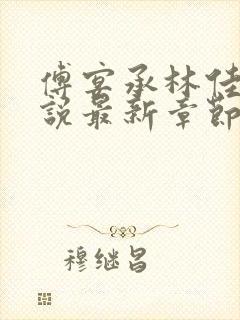 傅宴承林佳
說最新章節
穆继昌